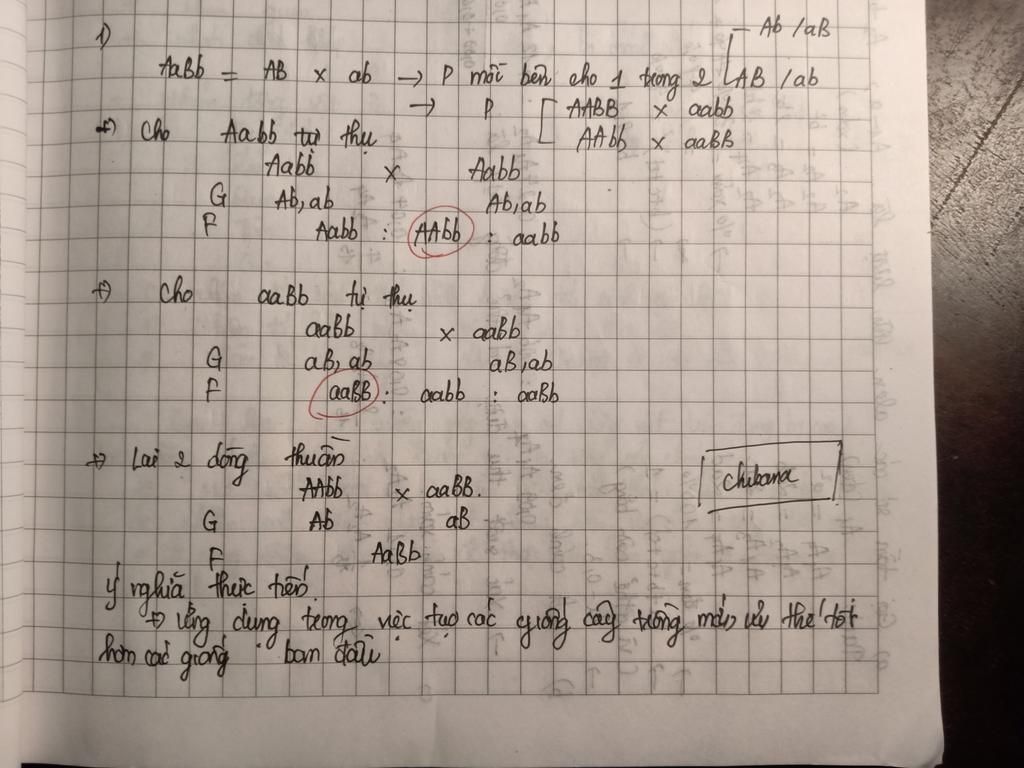 1)
Ab / aB
AaBb = AB x ab → P mỗi bên cho 1 trong 2 AB / ab
→ P AABB x aabb
AAbb x aaBB
+) Cho Aabb tự thụ
Aabb x Aabb
G Ab, ab Ab, ab
F Aabb : AAbb : aabb
+) Cho aaBb tự thụ
aaBb x aaBb
G aB, ab aB, ab
F aaBB : aabb : aaBb
=> Lai 2 dòng thuần
AAbb x aaBB.
chibana
G Ab aB
F AaBb
Ý nghĩa thực tiễn.
=> Ứng dụng trong việc tạo các giống cây trồng mới ưu thế tốt
hơn các giống ban đầu